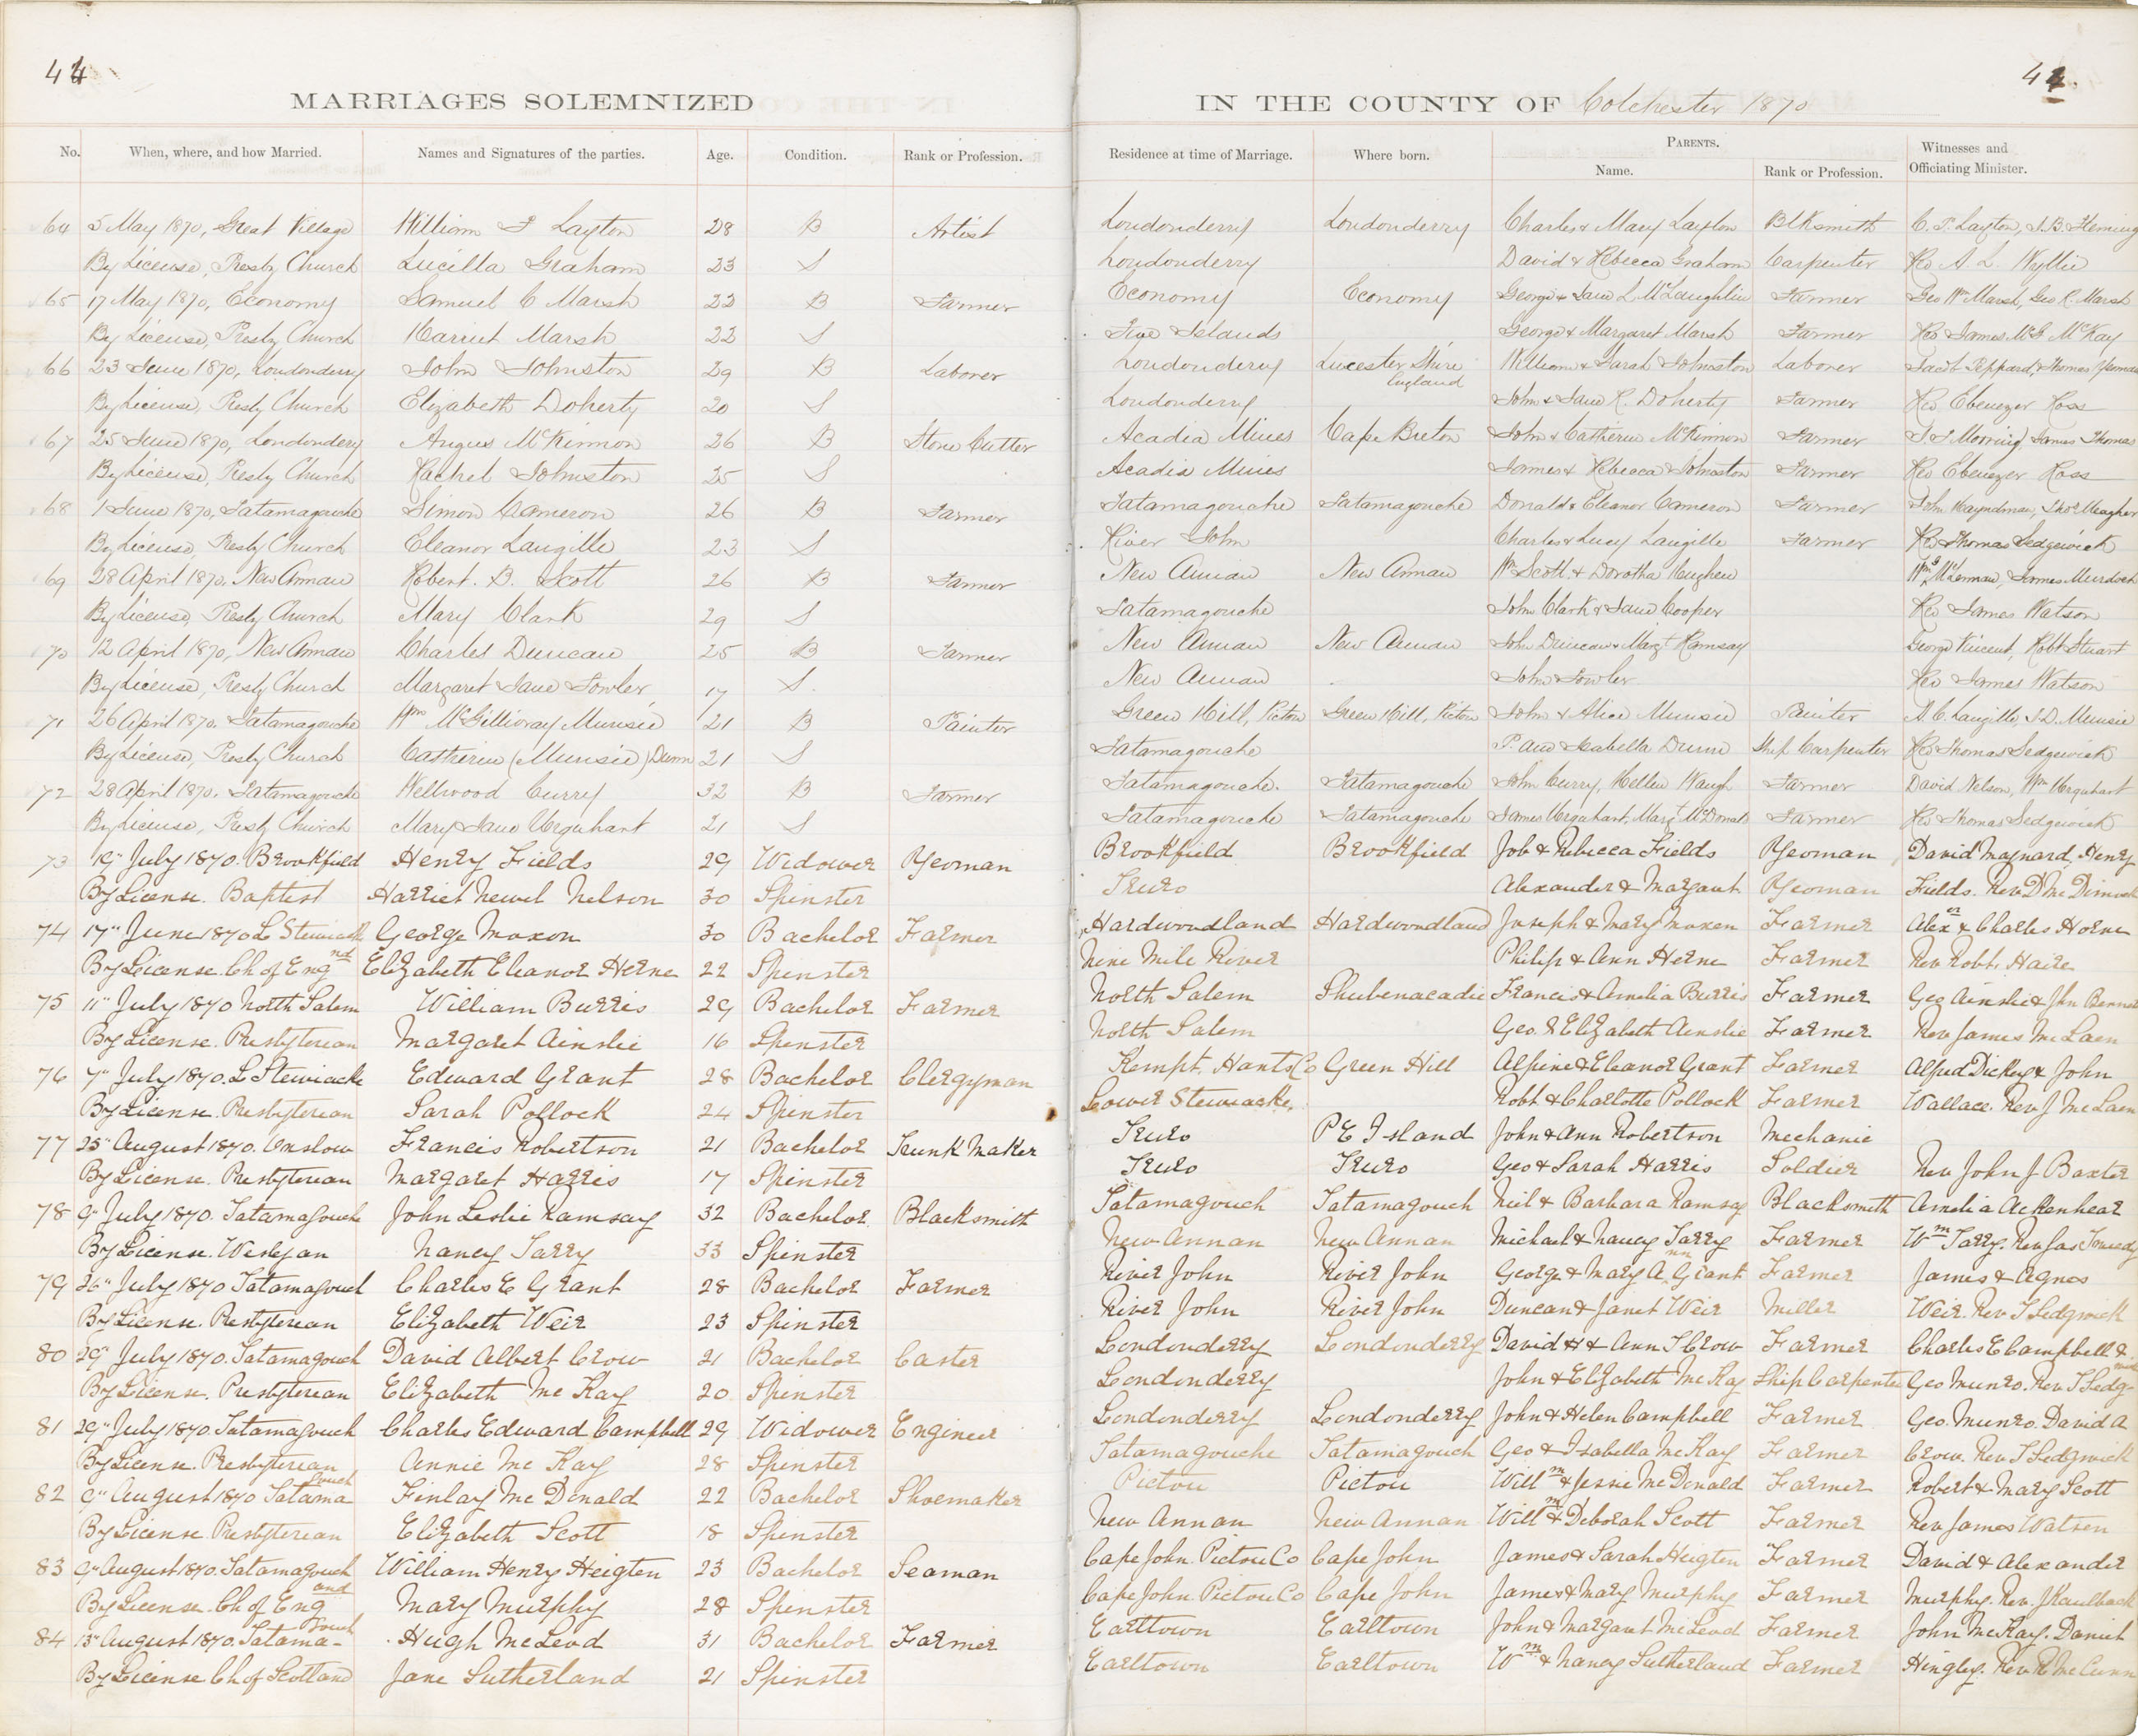 44
44.
MARRIAGES SOLEMNIZED IN THE COUNTY OF Colchester 1870
No. When, where, and how Married. Names and Signatures of the parties. Age. Condition. Rank or Profession. Residence at time of Marriage. Where born. PARENTS. Name. Rank or Profession. Witnesses and Officiating Minister.
64 5 May 1870, Great Village William F Layton 28 B Artist Londonderry Londonderry Charles & Mary Layton Blksmith C. P. Layton, J. B. Fleming
By License, Presby Church Lucilla Graham 23 S Londonderry David & Rebecca Graham Carpenter Rev A. L. Wyllie
65 17 May 1870, Economy Samuel C Marsh 22 B Farmer Economy Economy George & Jane L McLaughlin Farmer Geo Wm Marsh, Geo R. Marsh
By License, Presby Church Harriet Marsh 22 S Five Islands George & Margaret Marsh Farmer Rev James McG McKay
66 23 June 1870, Londonderry John Johnston 29 B Laborer Londonderry Leicester Shire England William & Sarah Johnston Laborer Jacob Peppard, Thomas Yeoman
By License, Presby Church Elizabeth Doherty 20 S Londonderry John & Jane R. Doherty Farmer Rev Ebenezer Ross
67 25 June 1870, Londondery Angus McKinnon 26 B Stone Cutter Acadia Mines Cape Breton John & Catherine McKinnon Farmer James Thomas
By License, Presby Church Rachel Johnston 25 S Acadia Mines James & Rebecca Johnston Farmer Rev Ebenezer Ross
68 1 June 1870, Tatamagouche Simon Cameron 26 B Farmer Tatamagouche Tatamagouche Donald & Eleanor Cameron Farmer John Hayndman, Thos Meagher
By License, Presby Church Eleanor Langille 23 S River John Charles & Lucy Langille Farmer Rev Thomas Sedgewick
69 28 April 1870, New Annan Robert. B. Scott 26 B Farmer New Annan New Annan Wm Scott & Dorotha Hughen James Murdoch
By License, Presby Church Mary Clark 29 S Tatamagouche John Clark & Jane Cooper Rev James Watson
70 12 April 1870, New Annan Charles Duncan 25 B Farmer New Annan New Annan John Duncan & Margt Ramsay George Vincent, Robt Stuart
By License, Presby Church Margaret Jane Fowler 17 S. New Annan John Fowler Rev James Watson
71 26 April 1870. Tatamagouche Wm McGillivray Munsie 21 B Painter Green Hill, Pictou Green Hill, Pictou John & Alice Munsie Painter A. C. Langille, J. D. Munsie
By License, Presby Church Catherine (Munsie) Dunn 21 S Tatamagouche P. and Isabella Dunn Ship Carpenter Rev Thomas Sedgewick
72 28 April 1870. Tatamagouche Wellwood Curry 32 B Farmer Tatamagouche. Tatamagouche John Curry, Hellen Waugh Farmer David Nelson, Wm Urquhart
By License, Presby Church Mary Jane Urquhart 21 S Tatamagouche Tatamagouche James Urquhart, Margt McDonal Farmer Rev Thomas Sedgewick
73 19" July 1870. Brookfield Henry Fields 29 Widower Yeoman Brookfield Brookfield Job & Rebecca Fields Yeoman David Maynard, Henry
By License. Baptist Harriet Newel Nelson 30 Spinster Truro Alexander & Margaret Yeoman Fields. Rev D Mc Dimock
74 17" June 1870 L Stewiacke George Moxon 30 Bachelor Farmer Hardwoodland Hardwoodland Joseph & Mary Moxon Farmer Alexer & Charles Horne
By License. Ch of Engnd Elizabeth Eleanor Herne 22 Spinster Nine Mile River Philip & Ann Herne Farmer Rev Robt. Haire
75 11" July 1870 North Salem William Burris 29 Bachelor Farmer North Salem Shubenacadie Francis & Amelia Burris Farmer Geo Ainslie & Jhn Bennet
By License. Presbyterian Margaret Ainslie 16 Spinster North Salem Geo. & Elizabeth Ainslie Farmer Rev James McLaen
76 7" July 1870. L Stewiacke Edward Grant 28 Bachelor Clergyman Kempt, Hants Co Green Hill Alpine & Eleanor Grant Farmer Alfred Dickey & John
By License. Presbyterian Sarah Pollock 24 Spinster Lower Stewiacke, Robt & Charlotte Pollock Farmer Wallace. Rev J McLaen
77 25" August 1870. Onslow Francis Robertson 21 Bachelor Trunk Maker Truro P E Island John & Ann Robertson Mechanic
By License. Presbyterian Margaret Harris 17 Spinster Truro Truro Geo & Sarah Harris Soldier Rev John J Baxter
78 9" July 1870. Tatamagouche John Leslie Ramsay 32 Bachelor. Blacksmith Tatamagouch Tatamagouch Neil & Barbara Ramsay Blacksmith Amelia Ackenhear
By License. Wesleyan Nancy Tarry 33 Spinster New Annan New Annan Michael & Nancy Tarry Farmer Wm Tarry. Rev Jas Tweedy
79 26" July 1870 Tatamagouch Charles E Grant 28 Bachelor Farmer River John River John George & Mary Ann Grant Farmer James & Agnes
By License. Presbyterian Elizabeth Weir 23 Spinster River John River John Duncan & Janet Weir Miller Weir. Rev T Sedgwick
80 29" July 1870. Tatamagouch David Albert Crow 21 Bachelor Caster Londonderry Londonderry David H & Ann T Crow Farmer Charles E Campbell &
By License. Presbyterian Elizabeth Mc Kay 20 Spinster Londonderry John & Elizabeth McKay Ship Carpenter Geo Munro. Rev T Sedg-wick
81 29" July 1870. Tatamagouch Charles Edward Campbell 29 Widower Engineer Londonderry Londonderry John & Helen Campbell Farmer Geo. Munro. David A
By License. Presbyterian Annie Mc Kay 28 Spinster Tatamagouche Tatamagouch Geo & Isabella McKay Farmer Crow. Rev T Sedgwick
82 9" August 1870 Tatamagouch Finlay Mc Donald 22 Bachelor Shoemaker Pictou Pictou Willm & Jessie McDonald Farmer Robert & Mary Scott
By License. Presbyterian Elizabeth Scott 18 Spinster New Annan New Annan Willm & Deborah Scott Farmer Rev James Watson
83 9" August 1870. Tatamagouch William Henry Heigten 23 Bachelor Seaman Cape John. Pictou Co Cape John James & Sarah Heigten Farmer David & Alexander
By License. Ch of England Mary Murphy 28 Spinster Cape John. Pictou Co Cape John James & Mary Murphy Farmer Murphy. Rev. J Kaulback
84 13" August 1870. Tatama-gouch Hugh McLeod 31 Bachelor Farmer Earltown Earltown John & Margaret McLeod Farmer John McKay. Daniel
By License Ch of Scotland Jane Sutherland 21 Spinster Earltown Earltown Wm & Nancy Sutherland Farmer Hingley. Rev R McCunn